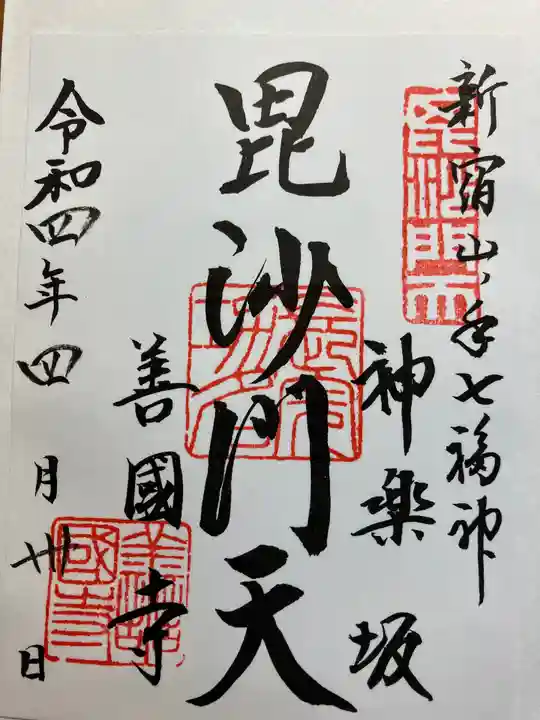 新宿山ノ手七福神
神楽坂
毘沙門天
善國寺
令和四年四月卅日